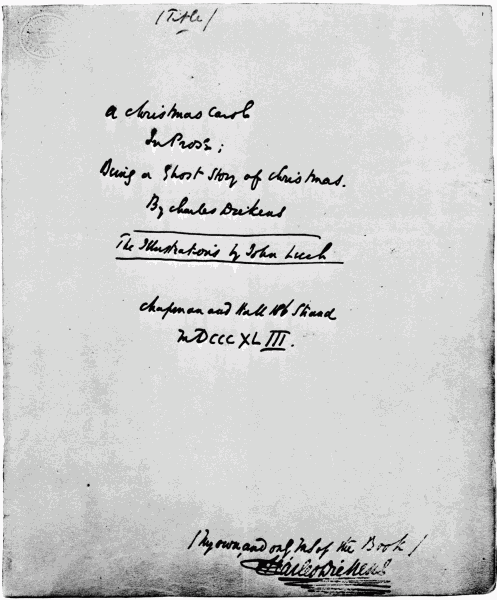 (Title)
A Christmas Carol
In Prose;
Being a Ghost Story of Christmas.
By Charles Dickens
The Illustrations by John Leech
Chapman and Hall 186 Strand
MDCCCXLIII.
(My own, and only MS of the Book)
Charles Dickens